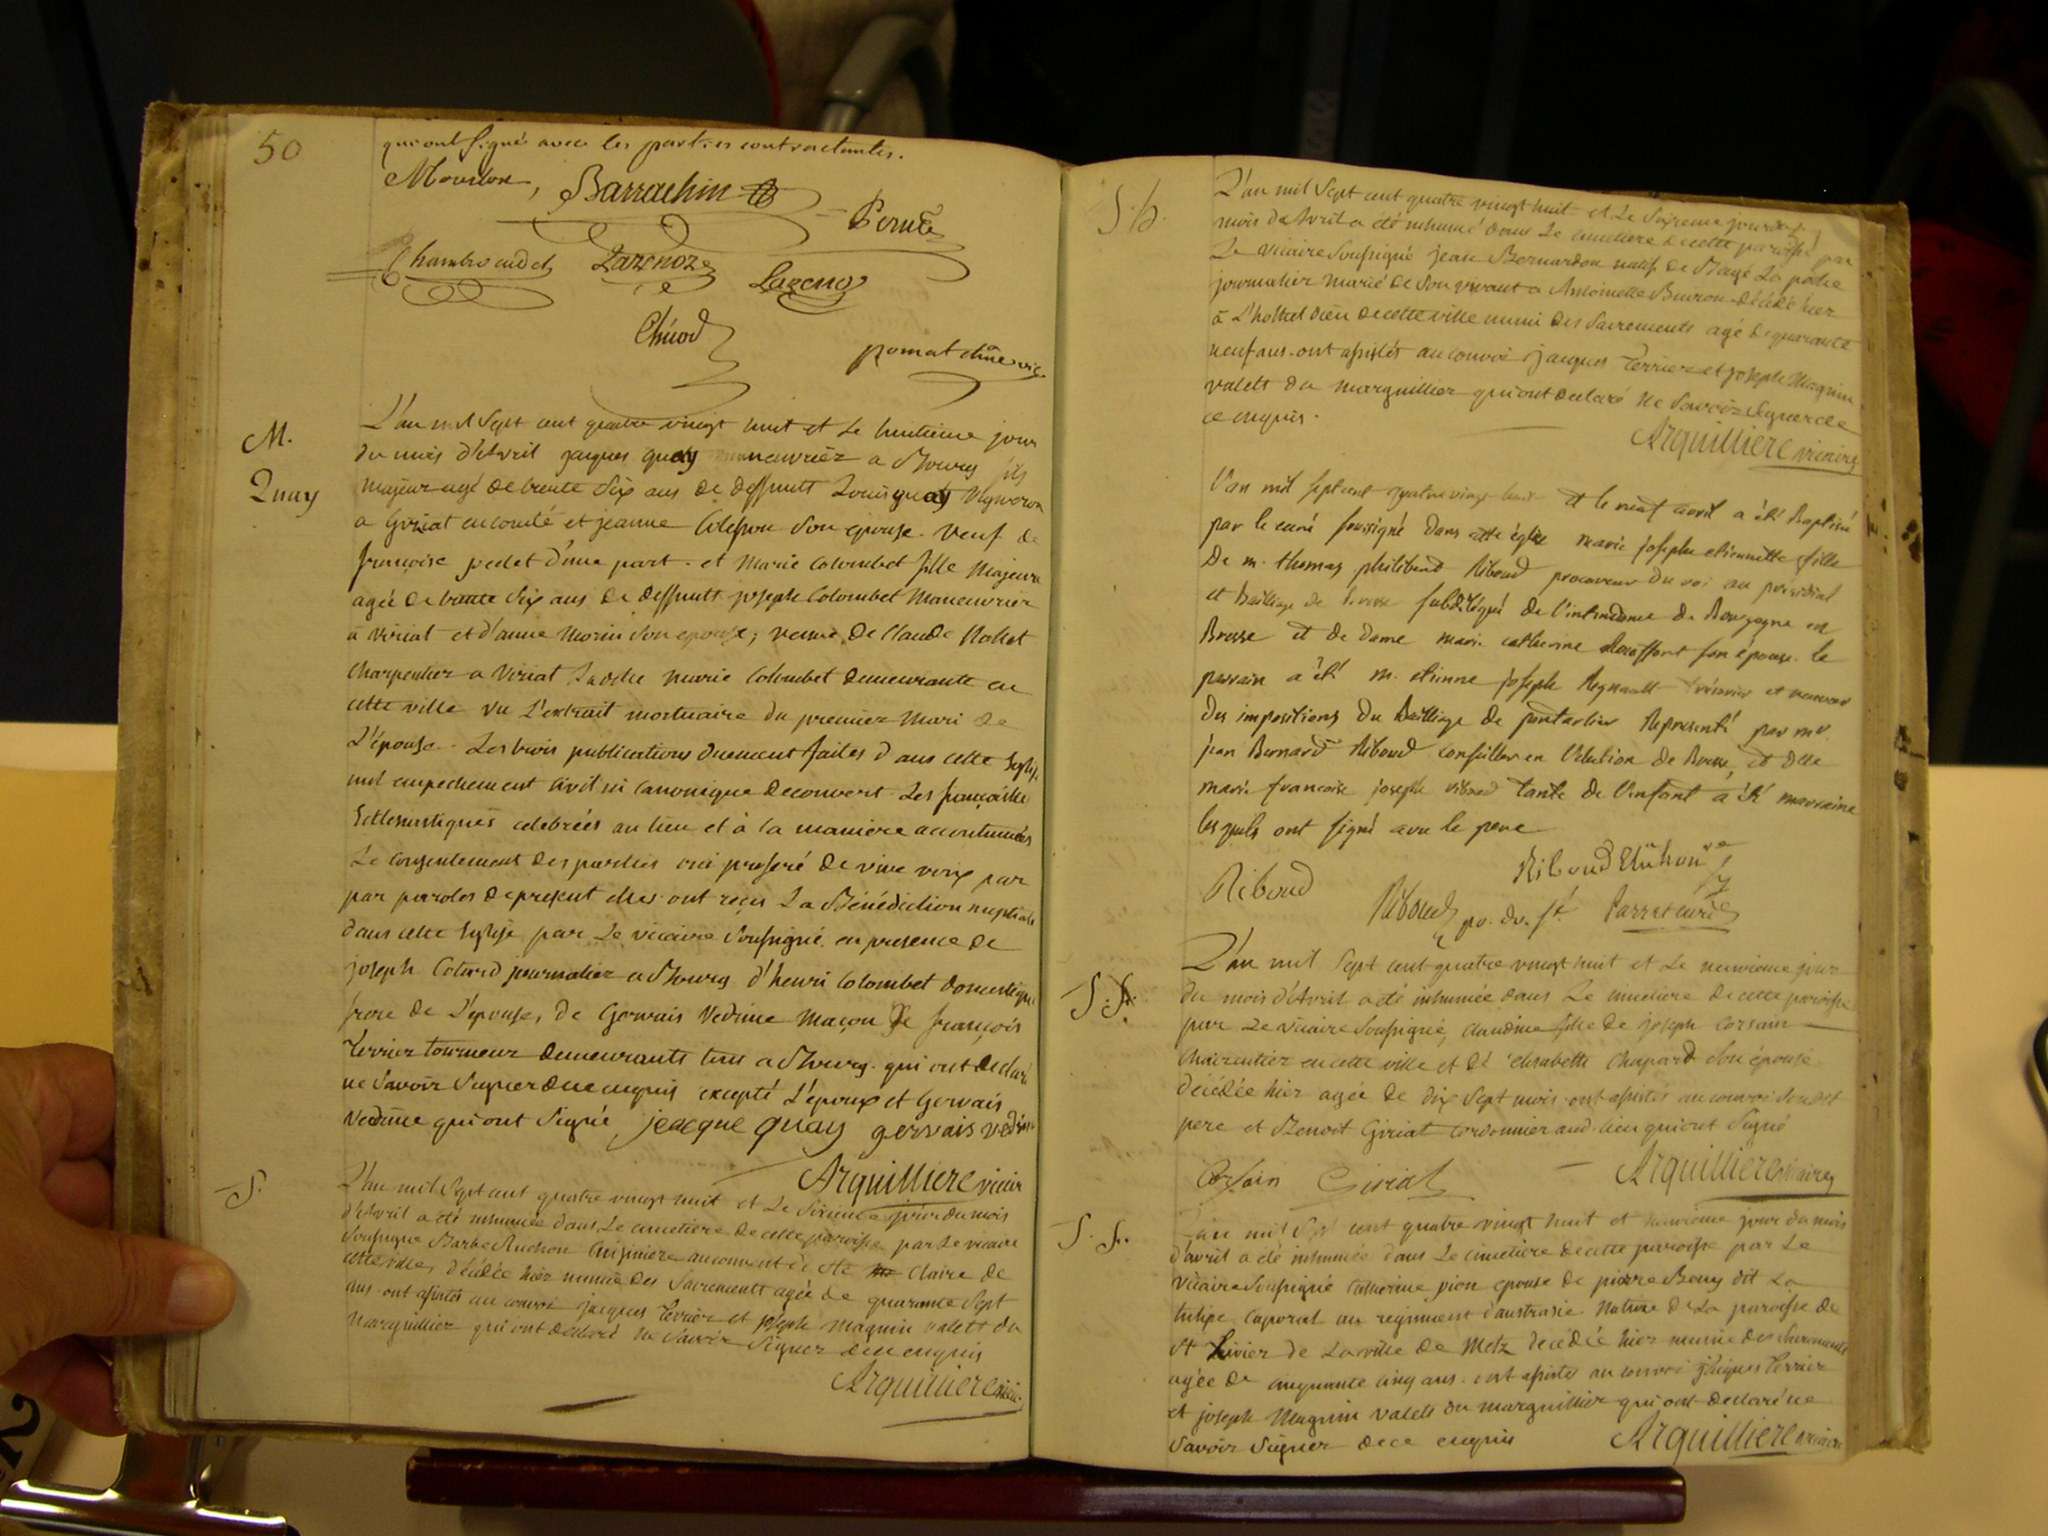 50
qui ont signé avec les parties contractantes.
Barrachin
Perruc
Chambraudet Lazenoz Lazeno
Chicod
pomat chne vic
M.
Quay
L'an mil sept cent quatre vingt huit et le huitieme jour
du mois d'Avril jacques quay maneuvrier a Bourg fils
majeur agé de trente six ans de deffunts Louis quay Vigneron
a en comté et jeanne son epouse. veuf de
françoise d'une part. et Marie Colombet fille Majeure
agée de trente six ans de deffunts joseph Colombet Maneuvrier
a viriat et d'anne Morin son epouse, veuve de Claude
charpentier a Viriat Ladite marie Colombet demeurante en
cette ville vu L'extrait mortuaire du premier Mari de
L'épouse. Les trois publications duement faites dans cette Eglise
nul empechement civil ni canonique decouvert. Les fiançailles
Ecclesiastiques celebrées au lieu et à la maniere accoutumées
Le consentement des parties oui proferé de vive voix par
par paroles de present elles ont reçu La Bénédiction nuptiale
dans cette Eglise par Le vicaire soussigné en presence de
joseph Colard journalier a Bourg d'henri Colombet domestique
frere de L'épouse, de Gervais Vedrine Maçon De françois
Terrier tourneur demeurants tous a Bourg. qui ont declaré
ne savoir signer de ce enquis excepté L'époux et Gervais
Vedrine qui ont signé, jeacque quay gervais vedrine
Arquilliere vicair
S.
L'an mil sept cent quatre vingt huit et Le jour du mois
d'Avril a été inhumée dans Le cimetiere de cette paroisse par Le vicaire
soussigné Barbe Ruchon Cuisiniere au couvent de Ste Claire de
cette ville, décédée hier munie des sacrements agée de quarante sept
ans. ont assistés au convoi jacques Terrier et joseph Magnin valets du
marguillier qui ont declaré ne savoir signer de ce enquis
Arquilliere vicair
S. h.
L'an mil sept cent quatre vingt huit et Le jour du
mois d'Avril a été inhumé dans Le cimetiere de cette paroisse par
Le vicaire soussigné jean Bernardon natif de Bagé La
journalier marié de son vivant a Antoinette Buiron décédé hier
à L'hostel Dieu de cette ville muni des sacrements agé de quarante
neuf ans. ont assistés au convoi jacques Terrier et joseph Magnin
valets du marguillier qui ont declaré ne savoir signer de
ce enquis.
Arquilliere vicaire
L'an mil sept cent quatre vingt huit et le neuf avril a été Baptisée
par le curé soussigné dans cette église marie josephe etiennette fille
De m. thomas philibert Riboud procureur du roi au présidial
et Bailliage de Bresse subdélégué de l'intendance de Bourgogne en
Bresse et de Dame marie catherine son épouse. le
parrain a été m. etienne joseph Regnault trésorier et receveur
des impositions du Bailliage de pontarlier Représenté par mr.
jean Bernard Riboud conseiller en l'élection de Bresse, et Dlle
marie francoise joseph riboud tante de l'enfant a été marraine
lesquels ont signé avec le pere
Riboud
Riboud pr. du. Parra curé
S. f.
L'an mil sept cent quatre vingt huit et Le neuvieme jour
du mois d'Avril a été inhumée dans Le cimetiere de cette paroisse
par Le Vicaire soussigné, claudine fille de joseph Corsain
charcutier en cette ville et de elisabeth Chapard son épouse
decédée hier agée de dix sept mois. ont assistés au convoi sondit
pere et Benoit Giriat cordonnier aud. lieu qui ont signé
Corsain Giriat Arquilliere vicaire
S. f.
L'an mil sept cent quatre vingt huit et neuvieme jour du mois
d'avril a été inhumée dans Le cimetiere de cette paroisse par Le
vicaire soussigné Catherine pion epouse de pierre Bony dit La
tulipe Caporal au regiment d'austrasie. Native de La paroisse de
St Livier de La ville de Metz decédée hier munie des sacrements
agée de cinquante cinq ans. ont assistés au convoi jacques Terrier
et joseph Magnin valets du marguillier qui ont declaré ne
savoir signer de ce enquis Arquilliere vicaire